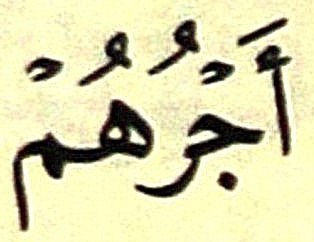 أَجْرُهُمْ